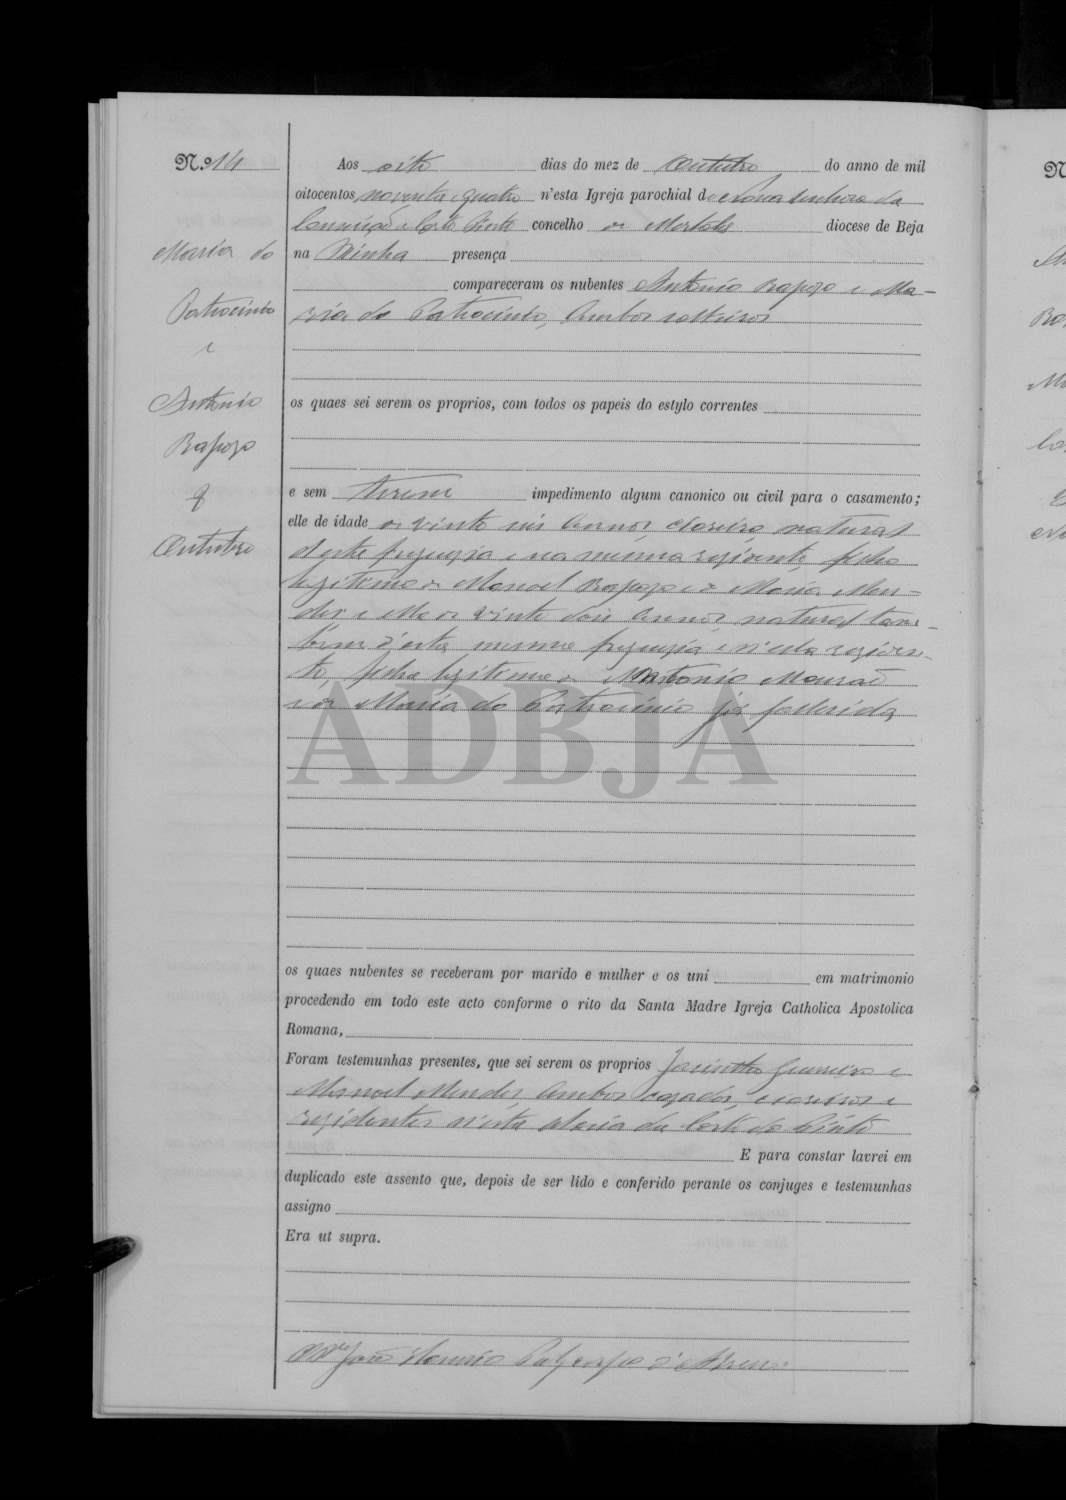 N.º 14
Aos oito dias do mez de Outubro do anno de mil
oitocentos noventa e quatro n'esta Igreja parochial de Nossa Senhora da
Conceição Corte Pinto concelho de Mertola diocese de Beja
na Minha presença
compareceram os nubentes Antonio Rapozo e Ma-
ria do Patrocinio, Ambos solteiros
os quaes sei serem os proprios, com todos os papeis do estylo correntes
e sem terem impedimento algum canonico ou civil para o casamento;
elle de idade de vinte seis Annos, natural
d'esta freguezia e na mesma rezidente, filho
legitimo de Manoel Rapozo e de Maria Men-
des e Ella de vinte dois Annos, natural tam-
bem d'esta mesma freguezia e n'ella reziden-
te, filha legitima de Antonio Mourão
e de Maria do Patrocinio já fallecida
os quaes nubentes se receberam por marido e mulher e os uni em matrimonio
procedendo em todo este acto conforme o rito da Santa Madre Igreja Catholica Apostolica
Romana,
Foram testemunhas presentes, que sei serem os proprios Jacintho Guerreiro e
Manoel Mendes Ambos cazados, e
rezidentes n'esta Aldeia da Corte do Pinto
E para constar lavrei em
duplicado este assento que, depois de ser lido e conferido perante os conjuges e testemunhas
assigno
Era ut supra.
João d'Abreu
Maria do
Patrocinio
e
Antonio
Rapozo
8
Outubro
ADBJA
N